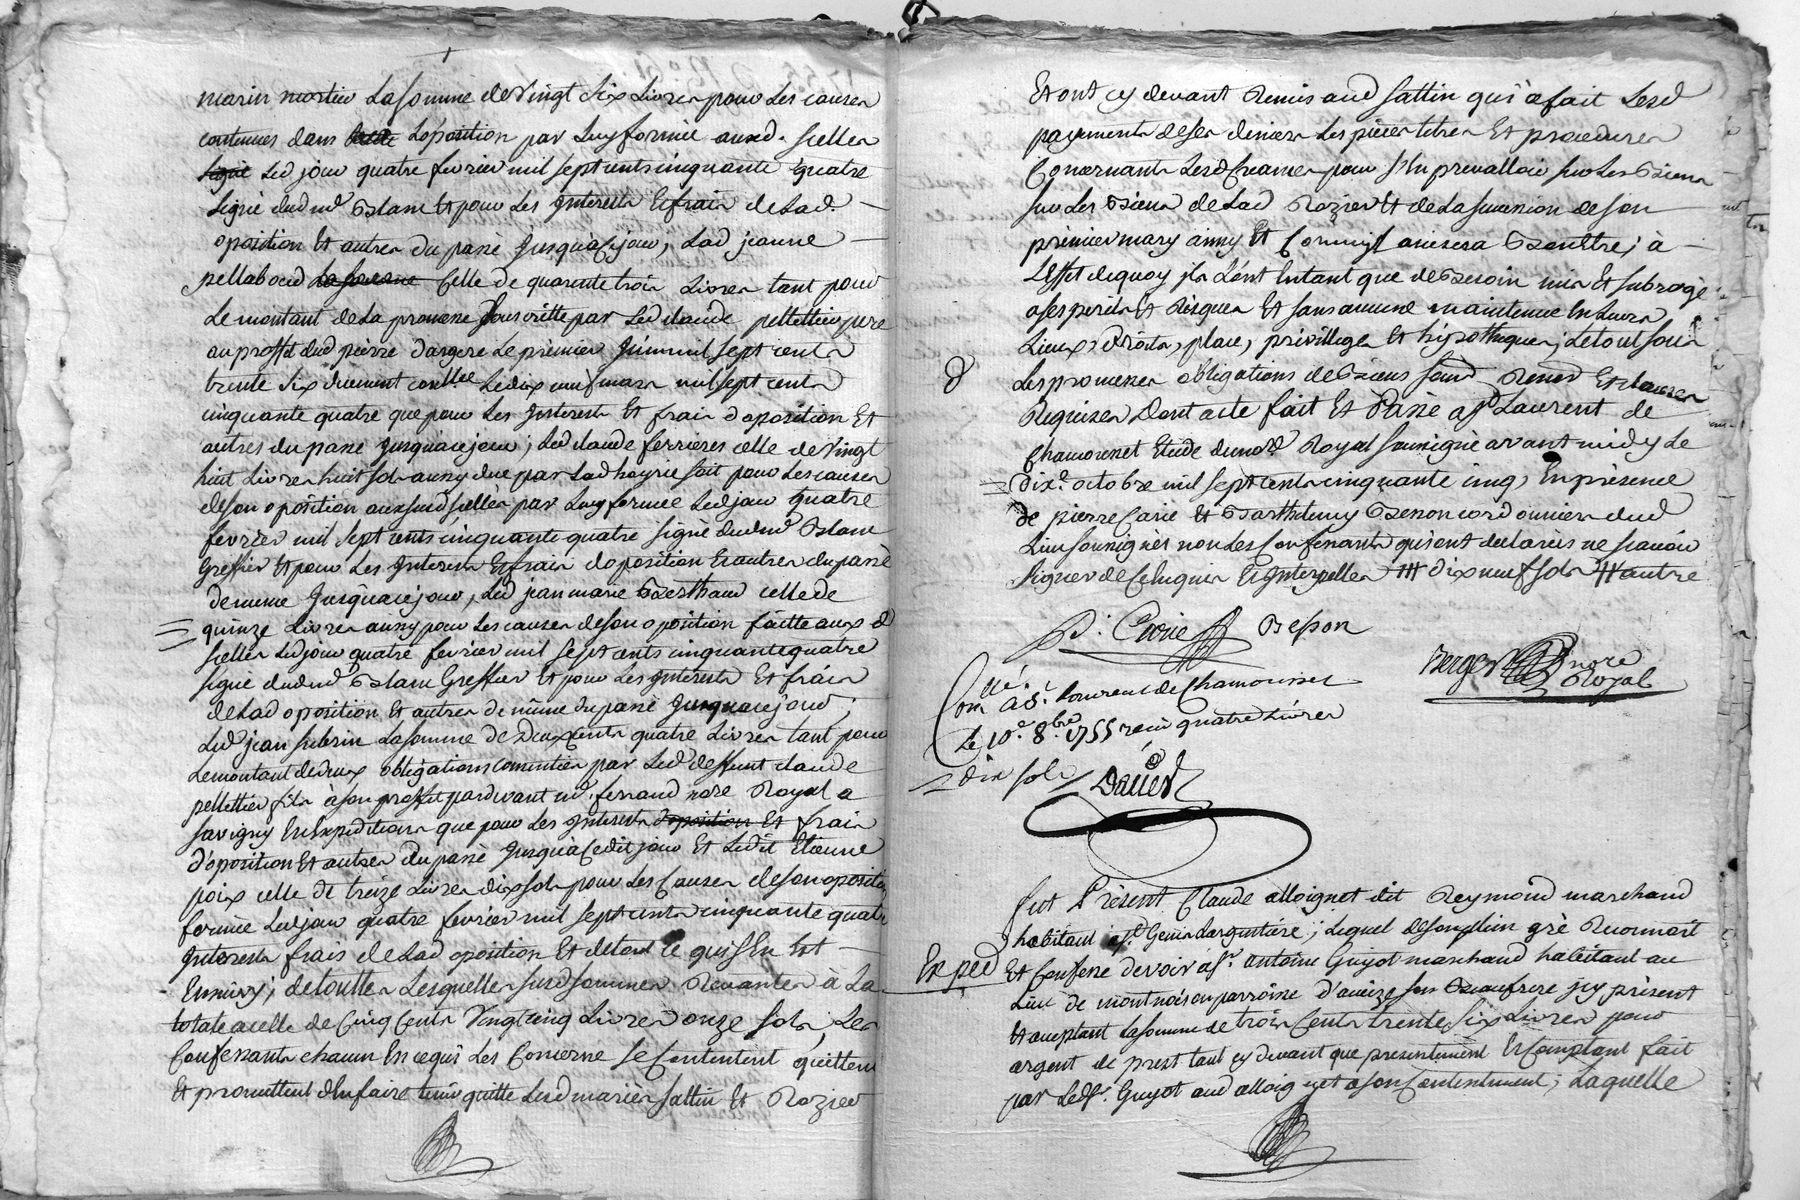 marin mortier La somme de Vingt Six Livres pour Les causes
contenues dans L'oposition par Luy formée auxd. scellés
signé Led jour quatre fevrier mil sept cents cinquante quatre
signé dud md Blanc Et pour Les Interests Et frais de Lad.
oposition Et autres du passé Jusqu'a ce jour, Lad jeanne
pellaboud La somme Celle de quarente trois Livres tant pour
Le montant de La promesse souscritte par Led claude pellettier pere
au proffit dud pierre dargere Le premier Juin mil sept cents
trente six duement conllée Le dix neuf mars mil sept cents
cinquante quatre que pour Les Interests Et frais d'oposition Et
autres du passé Jusqu'a ce jour; Led claude ferrieres celle de Vingt
huit Livres huit sols aussy due par Lad hoyrie soit pour Les causes
de son oposition auxsusd scellés par Luy formée Led jour quatre
fevrier mil sept cents cinquante quatre signé dud md Blanc
Greffier Et pour Les Interests Et frais doposition Et autres du passé
de meme Jusqu'a ce jour, Led jean marie Berthaud celle de
quinze Livres aussy pour Les causes de son oposition faitte aux d
scellés Led jour quatre fevrier mil sept cents cinquante quatre
signé dud md Blanc Greffier Et pour Les Interests Et frais
de Lad oposition Et autres de même du passé Jusqu'a ce jour;
Led jean La somme de Deux cents quatre Livres tant pour
Le montant de deux obligations commises par Led deffunt claude
pellettier fils à son proffit pardevant md. ferraud nore Royal a
savigny En Expeditions que pour Les Interests oposition Et frais
d'oposition Et autres du passé Jusqu'a Cedit jour Et Ledit Etienne
poix celle de treize Livres dix sols pour Les Causes de son oposition
formée Led jour quatre fevrier mil sept cents cinquante quatre
Interests frais de Lad oposition Et de tout ce qui s'En Est
Ensuivy; de touttes Lesquelles susd sommes Revenantes à La
totale a celle de Cinq Cents Vingt cinq Livres onze sols, Les
Confessants chacun En ce qui Les Concerne se Contentent quittent
Et promettent d'En faire tenir quitte Lesd mariés sattin Et Rozier
Et ont cy devant Remis aud sattin qui a fait Lesd
payements de ses deniers Les pieces titres Et procedures
Concernants Lesd Creances pour s'En prevalloir sur Les Biens
sur Les Biens de Lad Rozier Et de La succession de son
premier mary ainsy Et Comm'Il avisera Bon Etre; à
L'Effet de quoy Ils L'ont Entant que de Besoin mis Et subrogé
a ses perils Et Risques Et sans aucune maintenue En Leurs
Lieux, droits, place, privilleges Et hypotheques; Le tout sous
Les promesses obligations de Biens soumd Renod Et clauses
Requises Dont acte fait Et Passé a St Laurent de
Chamousset Etude du nore Royal soussigné avant midy Le
dixe. octobre mil sept cents cinquante cinq, En présence
de pierre Carie Et Barthelemy Besson cordonniers dud
Lieu soussignés non Les Confessants qui ont declarés ne scavoir
signer de ce Enquis Et Interpellés dix neuf sols autre
P. Carie Besson
Berger nore
Royal
Conllé. a St. Laurent de Chamousset
Le 10e. 8bre 1755 reçu quatre Livres
dix sols
Daviet
fut Présent Claude alloignet dit Reymond marchand
habitant a St. Genis Largentiere; Lequel de son plein gré Reconnait
Exped
Et Confesse devoir a Sr. antoine Guyot marchand habitant au
Lieu de montnoison parroisse d'aveize son Beaufrere icy présent
Et acceptant La somme de trois Cents trente Six Livres pour
argent de prest tant cy devant que presentement Et Comptant fait
par Led Sr. Guyot aud alloignet a son Contentement; Laquelle